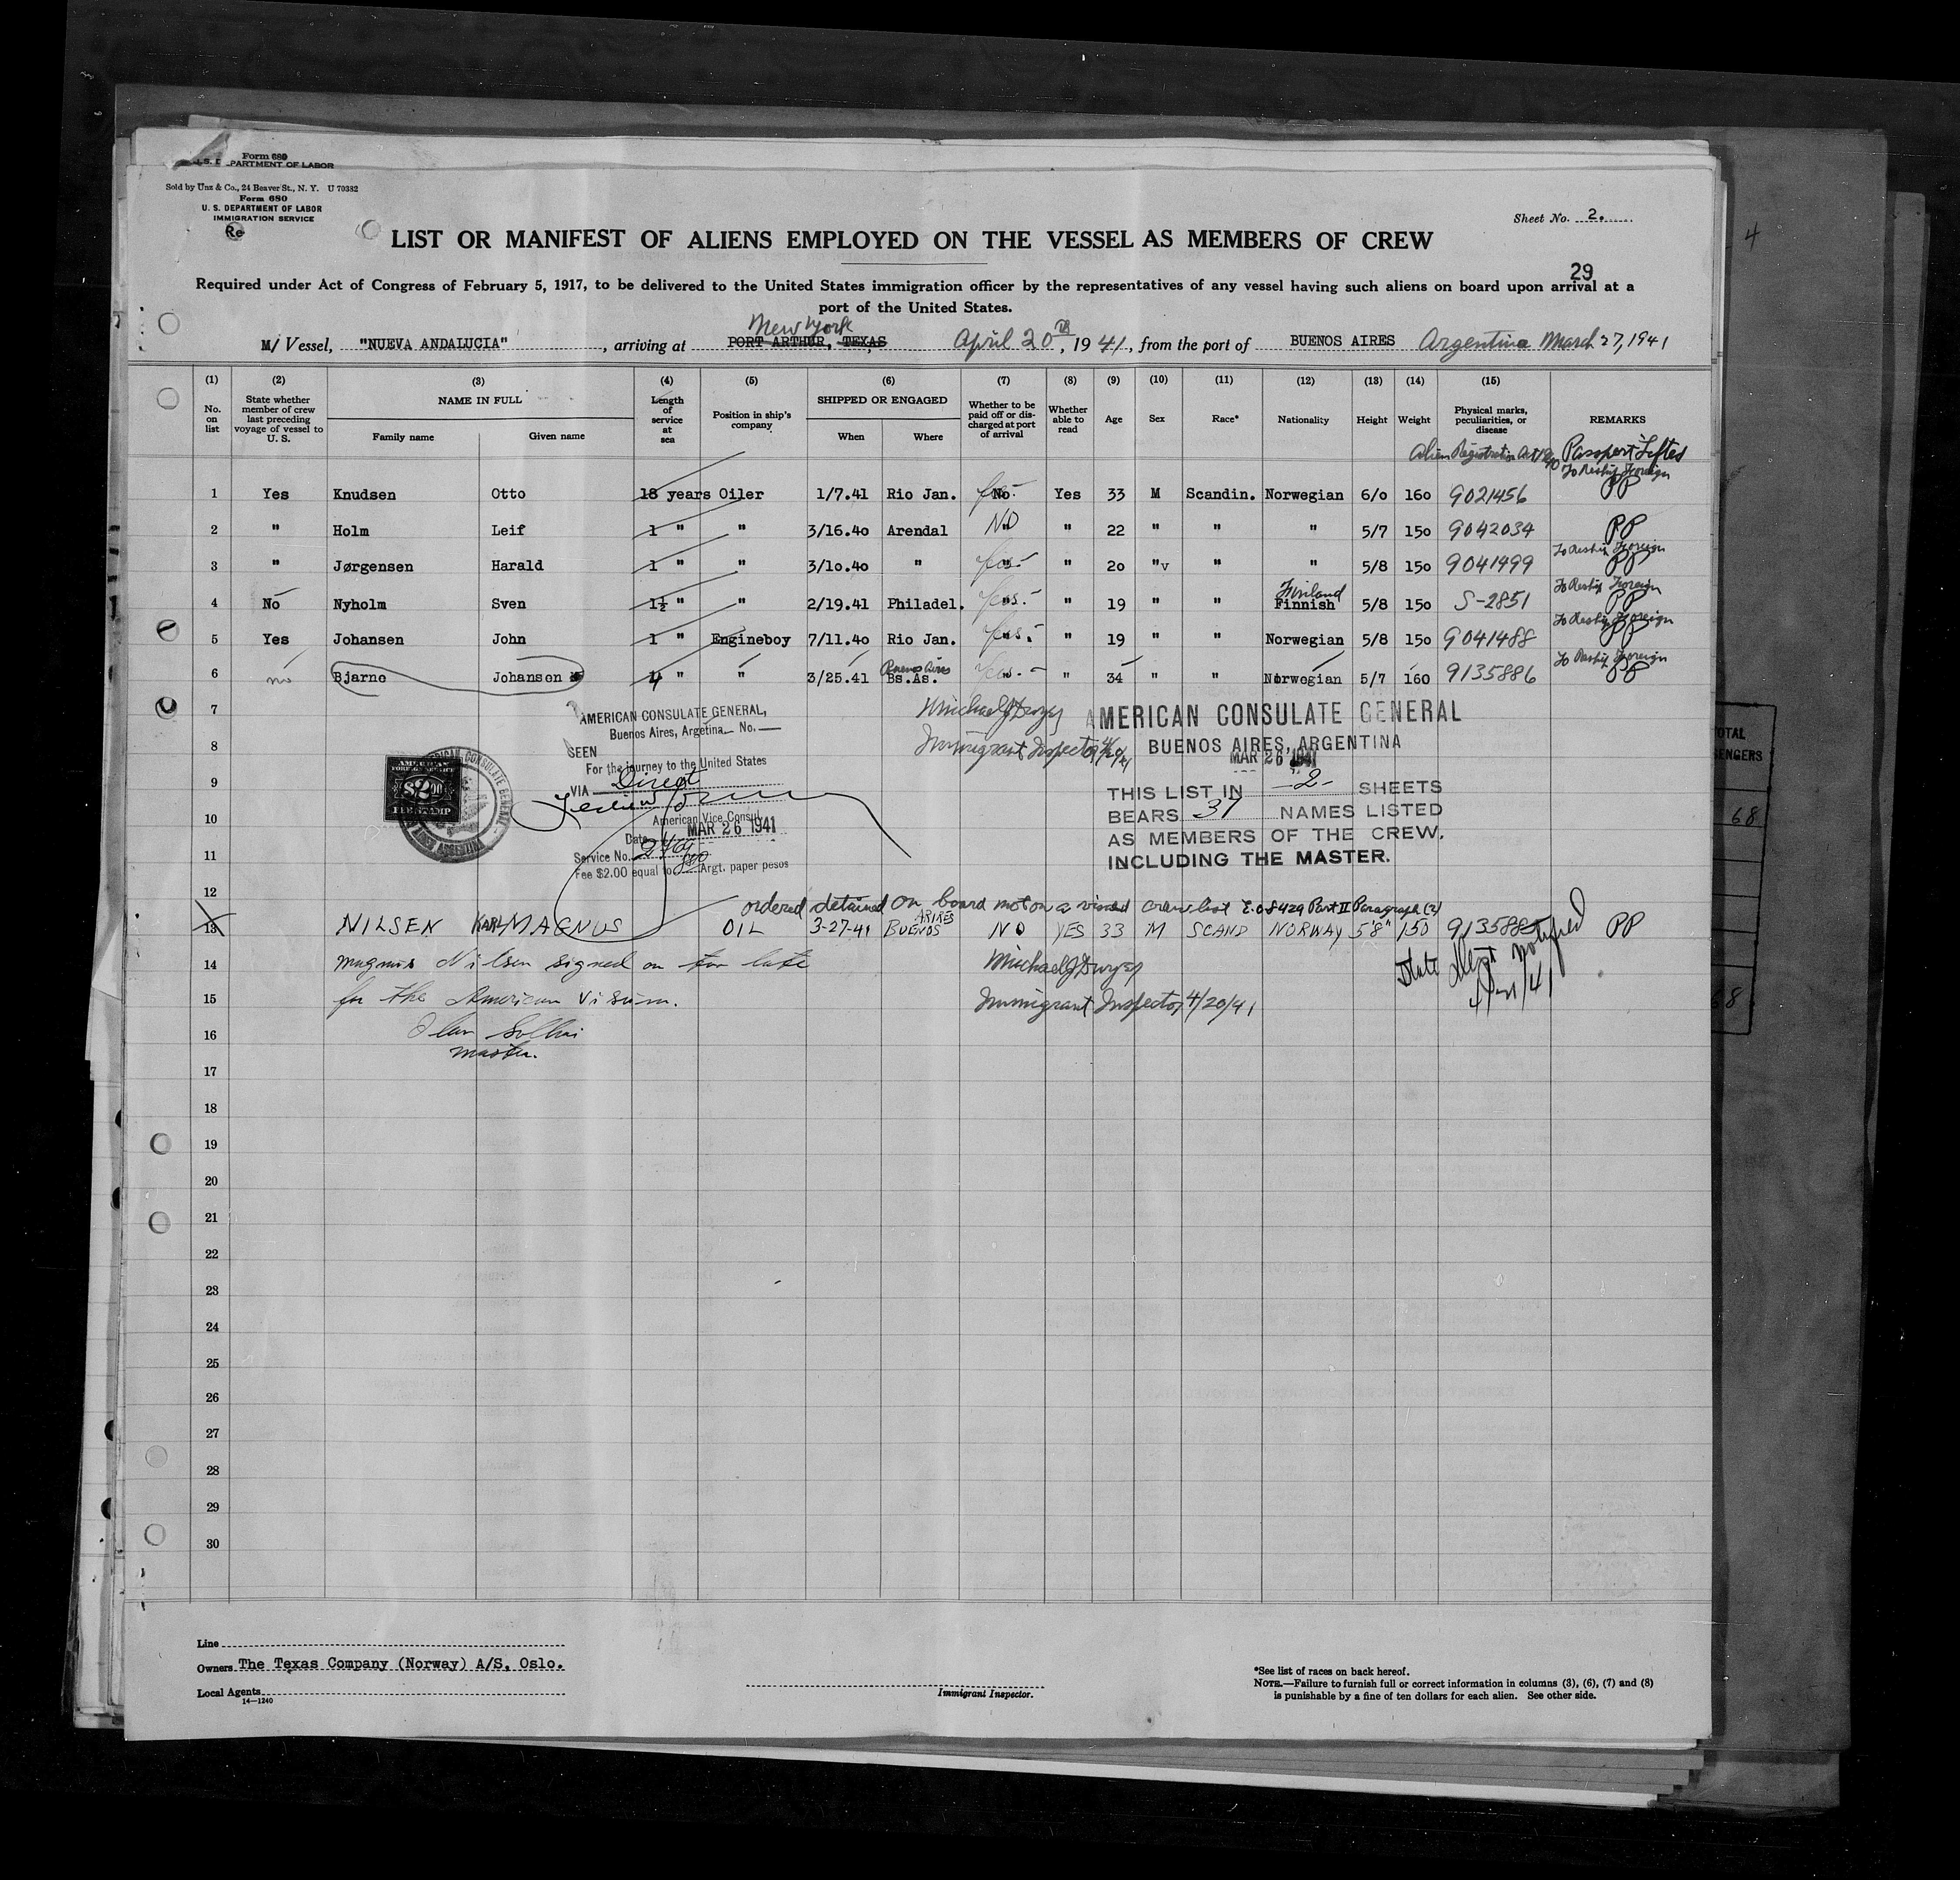 Form 680
PARTMENT OF LABOR
Sold by Unz & Co., 24 Beaver St., N. Y. U 70382
Form 680
U. S. DEPARTMENT OF LABOR
IMMIGRATION SERVICE
Re
Sheet No. 2.
4
LIST OR MANIFEST OF ALIENS EMPLOYED ON THE VESSEL AS MEMBERS OF CREW
29
Required under Act of Congress of February 5, 1917, to be delivered to the United States immigration officer by the representatives of any vessel having such aliens on board upon arrival at a
port of the United States.
New York
M/ Vessel, "NUEVA ANDALUCIA", arriving at PORT ARTHUR, TEXAS, April 20th, 1941, from the port of BUENOS AIRES Argentina March 27, 1941
(1) (2) (3) (4) (5) (6) (7) (8) (9) (10) (11) (12) (13) (14) (15)
No. on list State whether member of crew last preceding voyage of vessel to U. S. NAME IN FULL Family name Given name Length of service at sea Position in ship's company SHIPPED OR ENGAGED When Where Whether to be paid off or discharged at port of arrival Whether able to read Age Sex Race* Nationality Height Weight Physical marks, peculiarities, or disease REMARKS
Alien Registration Act 1940 Passport Lifted
To Reship Foreign
1 Yes Knudsen Otto 18 years Oiler 1/7.41 Rio Jan. No Yes 33 M Scandin. Norwegian 6/0 160 9021456 PP
2 " Holm Leif 1 " " 3/16.40 Arendal NO " " 22 " " " 5/7 150 9042034 PP
To Reship Foreign
3 " Jørgensen Harald 1 " " 3/10.40 " Yes " " 20 "v " " 5/8 150 9041499 PP
Finland To Reship Foreign
4 No Nyholm Sven 1½ " " 2/19.41 Philadel. Yes " " 19 " " Finnish 5/8 150 S-2851 PP
To Reship Foreign
5 Yes Johansen John 1 " Engineboy 7/11.40 Rio Jan. Yes " " 19 " " Norwegian 5/8 150 9041488 PP
Buenos Aires To Reship Foreign
6 no Bjarne Johanson 4 " " 3/25.41 Bs.As. Yes " " 34 " " Norwegian 5/7 160 9135886 PP
7
8
9
10
11
12
AMERICAN CONSULATE GENERAL,
Buenos Aires, Argetina No.
SEEN
For the journey to the United States
VIA Direct
American Vice Consul
Date MAR 26 1941
Service No.
Fee $2.00 equal to Argt. paper pesos
AMERICAN
$2.00
FEE STAMP
Michael J Dwyer
Immigrant Inspector 4/20/41
AMERICAN CONSULATE GENERAL
BUENOS AIRES, ARGENTINA
MAR 26 1941
THIS LIST IN -2- SHEETS
BEARS 37 NAMES LISTED
AS MEMBERS OF THE CREW,
INCLUDING THE MASTER.
ordered detained on board not on a visaed crew list E.O 8429 Part II Paragraph (2)
13 NILSEN KARL MAGNUS OIL 3-27-41 BUENOS AIRES NO YES 33 M SCAND NORWAY 5'8" 150 9135885 PP
14 magnus Nilsen signed on too late Michael J Dwyer
15 for the American visum. Immigrant Inspector 4/20/41
State Dept notified
4/21/41
16
master.
17
18
19
20
21
22
23
24
25
26
27
28
29
30
TOTAL
68
68
Line
Owners The Texas Company (Norway) A/S, Oslo.
Local Agents
14—1240
Immigrant Inspector.
*See list of races on back hereof.
NOTE.—Failure to furnish full or correct information in columns (3), (6), (7) and (8)
is punishable by a fine of ten dollars for each alien. See other side.